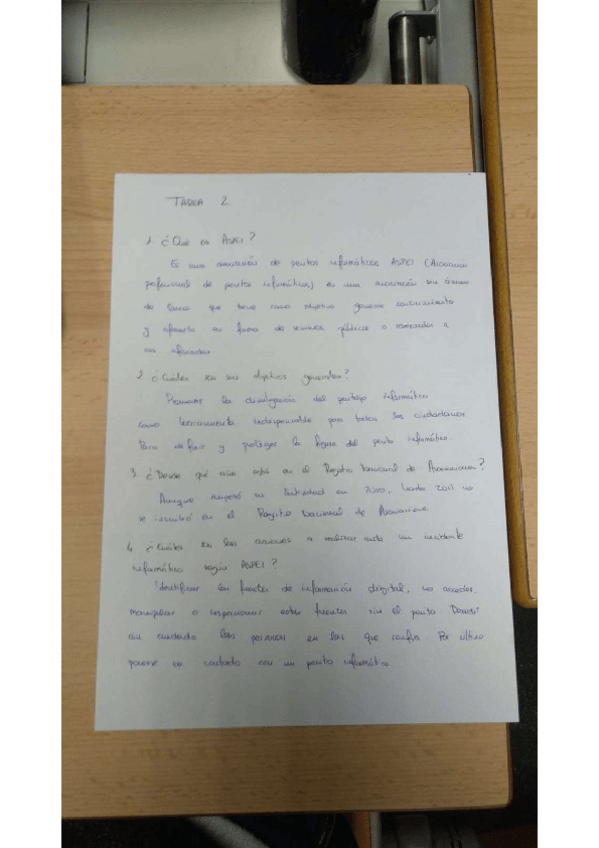 TAREA 2
1. ¿Qué es ASPEI?
Es una asociación de peritos informáticos ASPEI (Asociación
profesional de peritos informáticos) es una asociación sin ánimo
de lucro que tiene como objetivo generar conocimiento
y ofrecerlo en forma de servicios públicos o reservados a
sus afiliados.
2. ¿Cuáles son sus objetivos generales?
Promover la divulgación del peritaje informático
como herramienta indispensable para todos los ciudadanos
Para definir y proteger la figura del perito informático.
3. ¿Desde qué año está en el Registro Nacional de Asociaciones?
Aunque empezó su actividad en 2010, hasta 2011 no
se inscribió en el Registro Nacional de Asociaciones.
4. ¿Cuáles son las acciones a realizar ante un incidente
informático según ASPEI?
Identificar las fuentes de información digital, no acceder,
manipular o inspeccionar estas fuentes sin el perito.
en cuidado las personas en las que confía. Por último
ponerse en contacto con un perito informático.